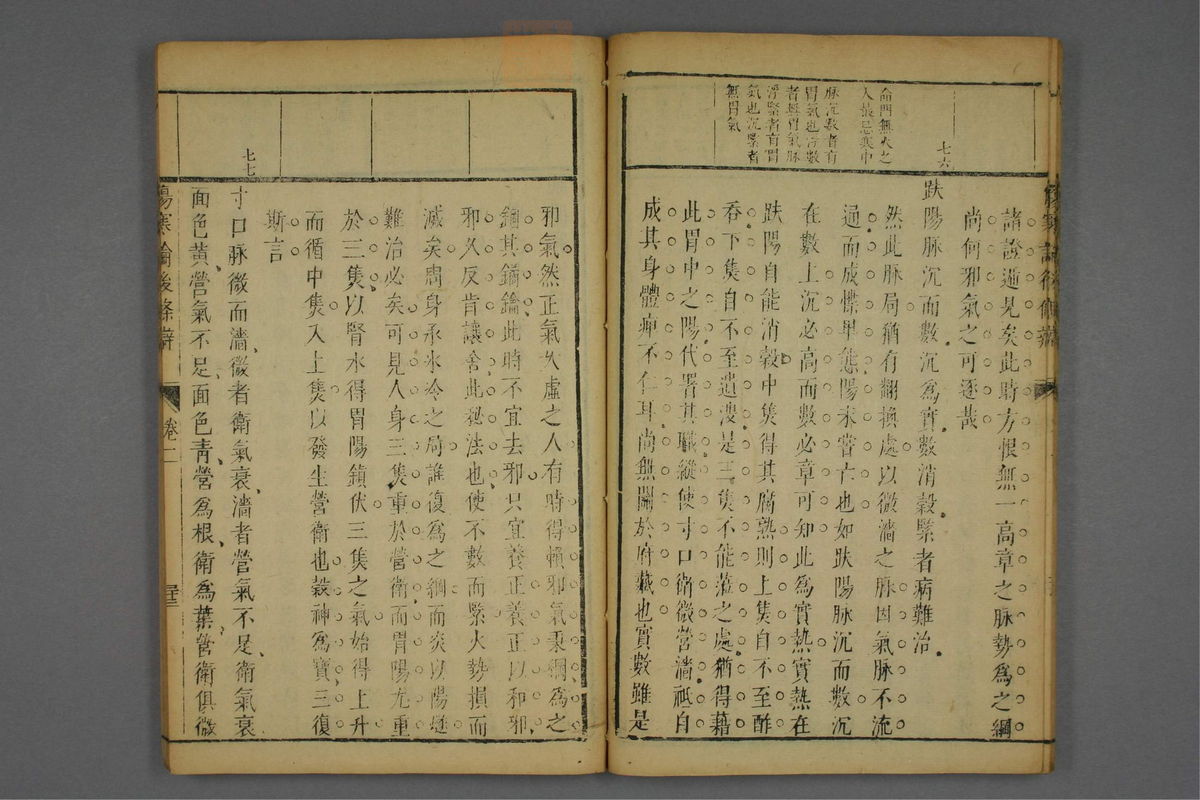 諸證迺見矣此時方恨無一高章之脈勢爲之綱
尚何邪氣之可逐哉
趺陽脈沉而數沉爲實數消穀緊者病難治
然此脈局猶有翻換處以微濇之脈因氣脈不流
通而成慄卑態陽未嘗亡也如趺陽脈沉而數沉
在數上沉必高而數必章可知此爲實熱實熱在
趺陽自能消穀中隻得其腐熟則上隻自不至酢
吞下隻自不至遺溲是三隻不能蒞之處猶得藉
此胃中之陽代署其職縱使寸口衛微營濇祗自
成其身體痺不仁耳尚無關於府藏也實數雖是
七六
命門無火之
人最忌寒中
脈沉數者有
胃氣也浮數
者無胃氣脈
浮緊者有胃
氣也沉緊者
無胃氣
傷寒論後條辨
邪氣然正氣久虛之人有時得賴邪氣秉綱爲之
錮其鎖鑰此時不宜去邪只宜養正養正以和邪
邪久反肯讓舍此秘法也使不數而緊火勢損而
滅矣周身承氷冷之局誰復爲之綱而炎以陽愆
難治必矣可見人身三隻重於營衛而胃陽尤重
於三隻以腎水得胃陽鎮伏三隻之氣始得上升
而循中隻入上隻以發生營衛也穀神爲寶三復
斯言
寸口脈微而濇微者衛氣衰濇者營氣不足衛氣衰
面色黃營氣不足面色青營爲根衛爲葉營衛俱微
七七
傷寒論後條辨
卷二